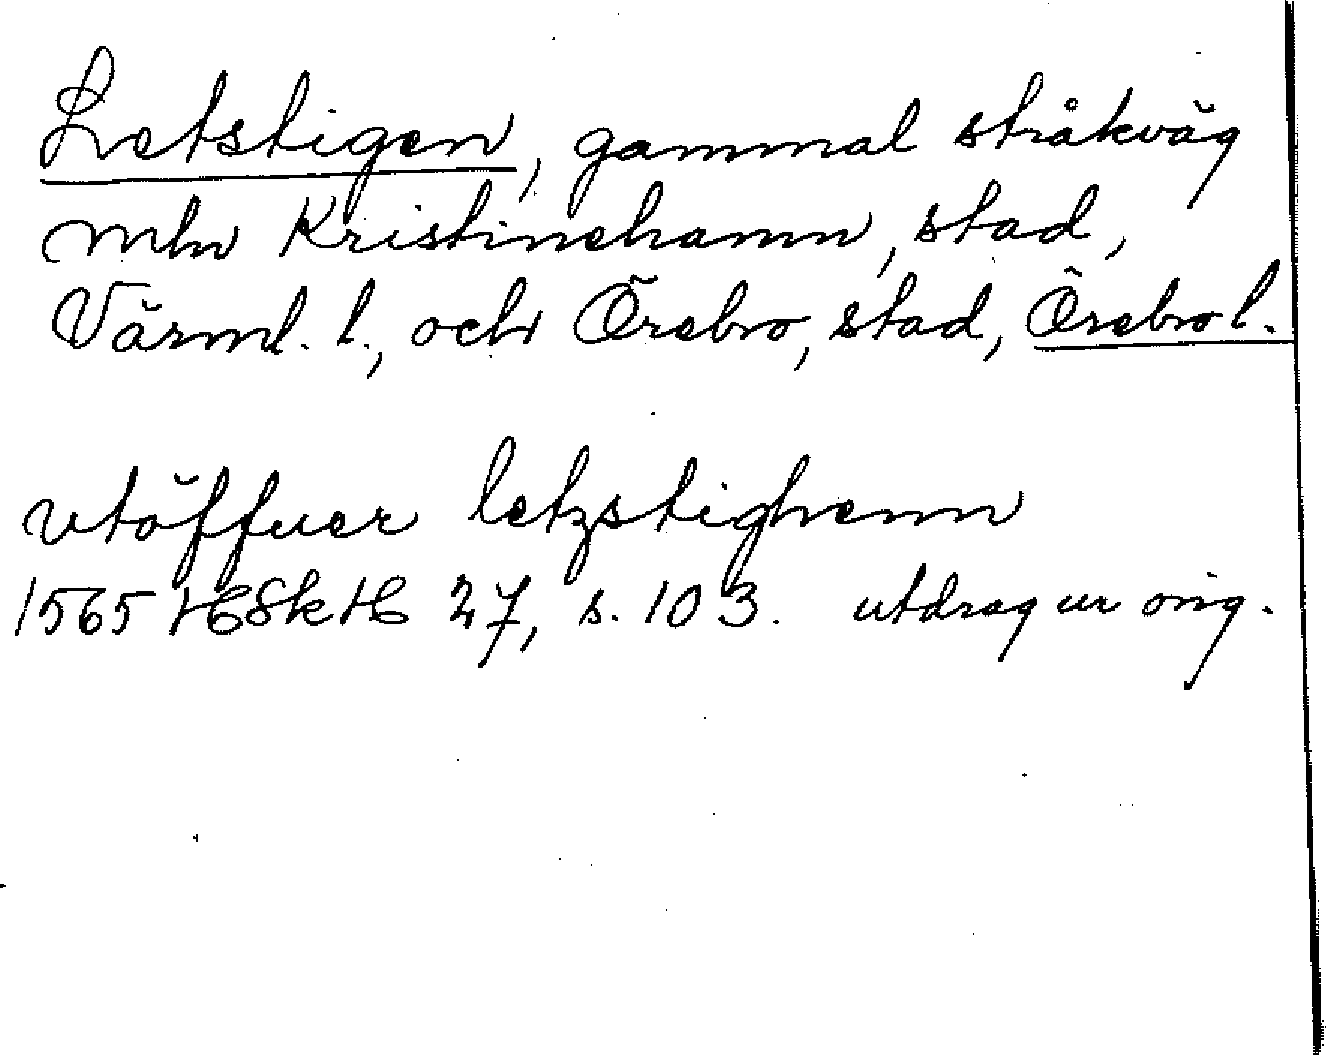 Letstigen, gammal stråkväg
mln Kristinehamn, stad,
Värml. l., och Örebro, stad, Örebro l.
vtöffuer letzstighenn
1565 HSkH 27, s. 103. utdrag ur orig.